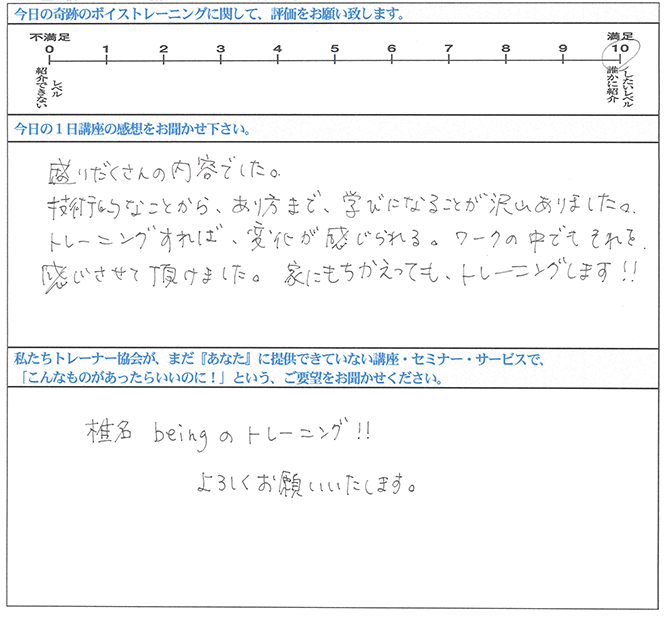 今日の奇跡のボイストレーニングに関して、評価をお願い致します。
不満足 満足
0 1 2 3 4 5 6 7 8 9 10
紹介できない
レベル
誰かに紹介
したいレベル
今日の1日講座の感想をお聞かせ下さい。
盛りだくさんの内容でした。
技術的なことから、あり方まで、学びになることが沢山ありました。
トレーニングすれば、変化が感じられる。ワークの中でもそれを
感じさせて頂けました。家にもちかえっても、トレーニングします!!
私たちトレーナー協会が、まだ『あなた』に提供できていない講座・セミナー・サービスで、
「こんなものがあったらいいのに!」という、ご要望をお聞かせください。
椎名 beingのトレーニング!!
よろしくお願いいたします。